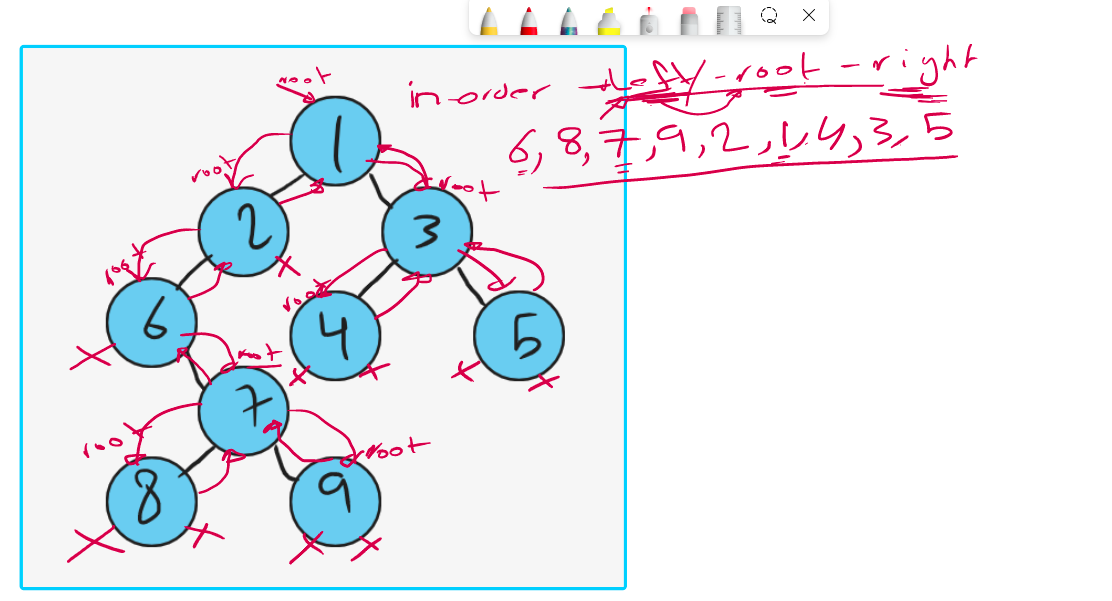 root
in-order → left - root - right
6, 8, 7, 9, 2, 1, 4, 3, 5
1
root
root
2
3
root
root
6
4
5
root
7
root
root
8
9